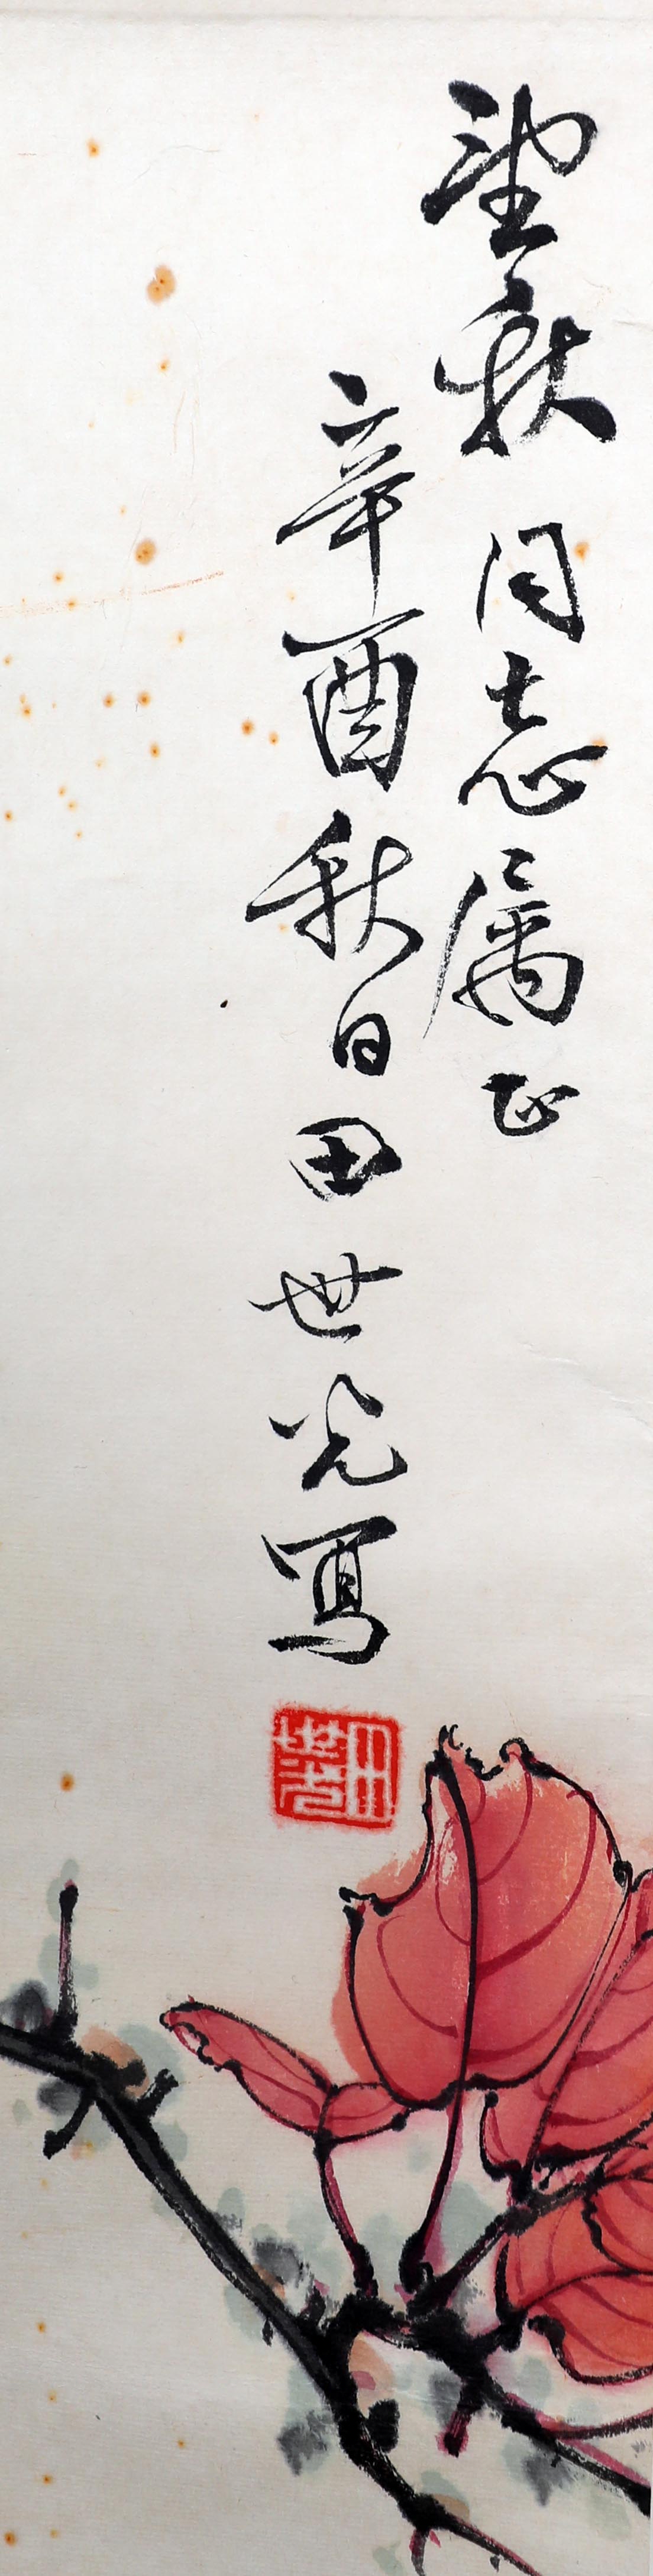 望秋同志属正
辛酉秋日田世光寫
田世光